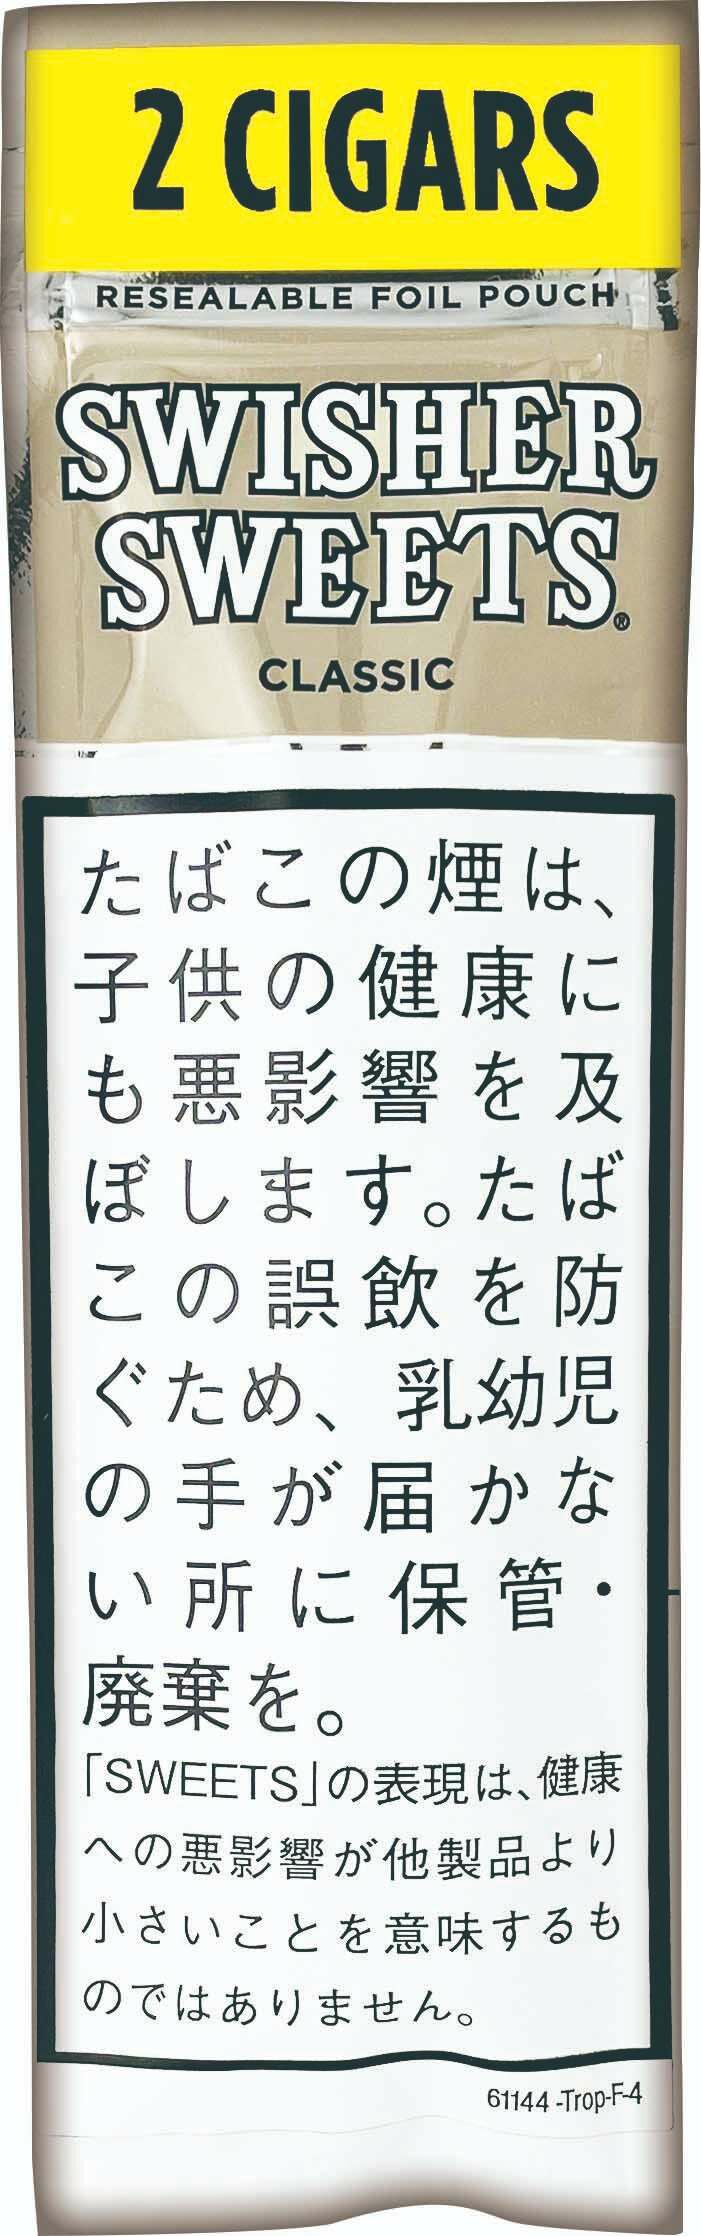 2 CIGARS
RESEALABLE FOIL POUCH
SWISHER
SWEETS®
CLASSIC
たばこの煙は、
子供の健康に
も悪影響を及
ぼします。たば
この誤飲を防
ぐため、乳幼児
の手が届かな
い所に保管・
廃棄を。
「SWEETS」の表現は、健康
への悪影響が他製品より
小さいことを意味するも
のではありません。
61144 -Trop-F-4